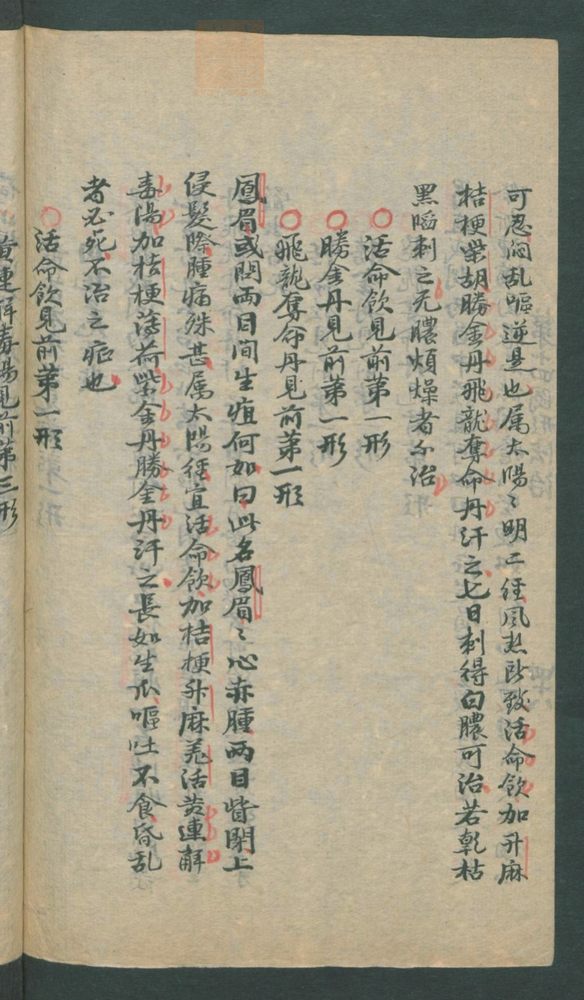 可忍悶乱嘔逆是也属太陽〻明二经風热所致活命飲加升麻
桔梗柴胡勝金丹飛龍奪命丹汗之七日刺得白膿可治若乾枯
黑陷刺之无膿煩燥者不治
○活命飲見前第一形
○勝金丹見前第一形
○飛龍奪命丹見前第一形
鳳眉或問两目間生疽何如曰此名鳳眉〻心赤腫两目皆閉上
侵髮際腫痛殊甚属太陽经宜活命飲加桔梗升麻羌活黄連解
毒湯加桔梗薄荷紫金丹勝金丹汗之長如生瓜嘔吐不食昏乱
者必死不治之症也
○活命飲見前第一形
黄連解毒湯見前第三形